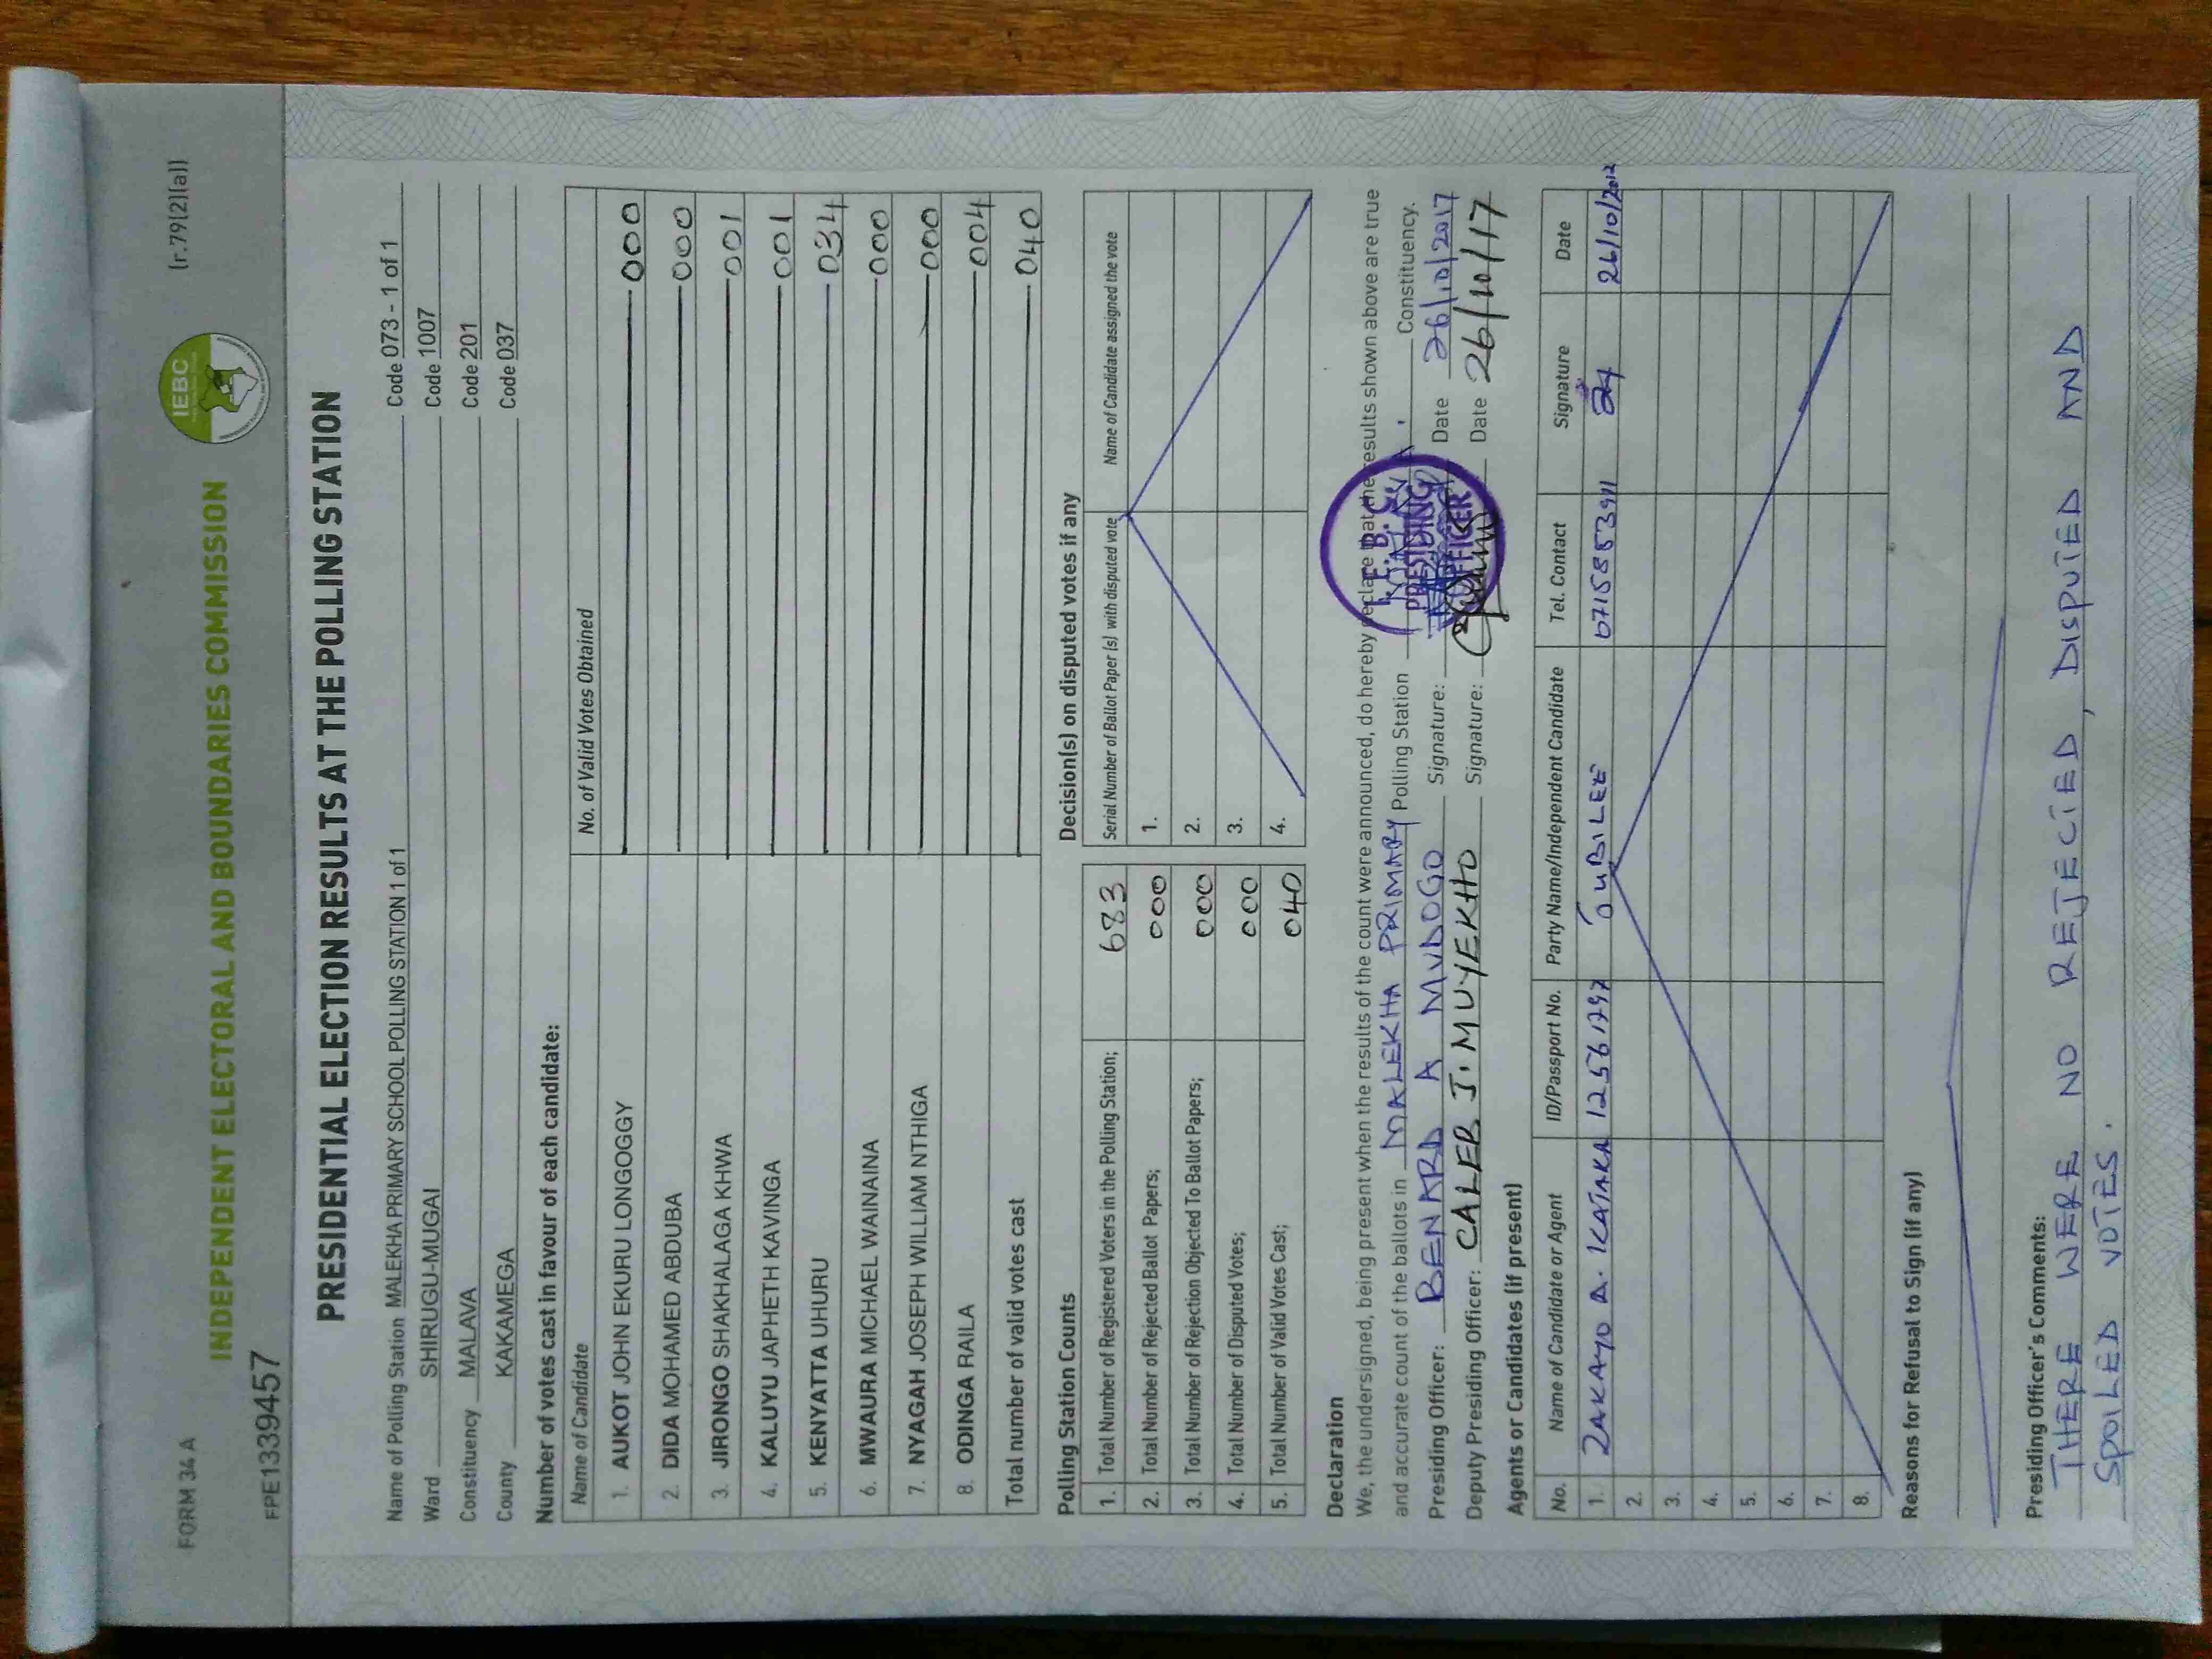 FORM 34 A
(r.79(2)(a))
IEBC
INDEPENDENT ELECTORAL AND BOUNDARIES COMMISSION
FPE1339457
PRESIDENTIAL ELECTION RESULTS AT THE POLLING STATION
Name of Polling Station MALEKHA PRIMARY SCHOOL POLLING STATION 1 of 1 Code 073 - 1 of 1
Ward SHIRUGU-MUGAI Code 1007
Constituency MALAVA Code 201
County KAKAMEGA Code 037
Number of votes cast in favour of each candidate:
Name of Candidate No. of Valid Votes Obtained
1. AUKOT JOHN EKURU LONGOGGY 000
2. DIDA MOHAMED ABDUBA 000
3. JIRONGO SHAKHALAGA KHWA 001
4. KALUYU JAPHETH KAVINGA 001
5. KENYATTA UHURU 034
6. MWAURA MICHAEL WAINAINA 000
7. NYAGAH JOSEPH WILLIAM NTHIGA 000
8. ODINGA RAILA 004
Total number of valid votes cast 040
Polling Station Counts
1. Total Number of Registered Voters in the Polling Station; 683
2. Total Number of Rejected Ballot Papers; 000
3. Total Number of Rejection Objected To Ballot Papers; 000
4. Total Number of Disputed Votes; 000
5. Total Number of Valid Votes Cast; 040
Decision(s) on disputed votes if any
Serial Number of Ballot Paper (s) with disputed vote Name of Candidate assigned the vote
1.
2.
3.
4.
Declaration
We, the undersigned, being present when the results of the count were announced, do hereby declare that the results shown above are true
and accurate count of the ballots in MALEKHA PRIMARY Polling Station Constituency.
Presiding Officer: BENARD A MUDOGO Signature: Date 26/10/2017
Deputy Presiding Officer: CALEB J. MUYEKHO Signature: Date 26/10/17
I.E.B.C
PRESIDING
OFFICER
Agents or Candidates (if present)
No. Name of Candidate or Agent ID/Passport No. Party Name/Independent Candidate Tel. Contact Signature Date
1. ZAKAYO A. KATAKA 12561797 JUBILEE 0715853911 26/10/2017
2.
3.
4.
5.
6.
7.
8.
Reasons for Refusal to Sign (if any)
Presiding Officer's Comments:
THERE WERE NO REJECTED, DISPUTED AND
SPOILED VOTES.